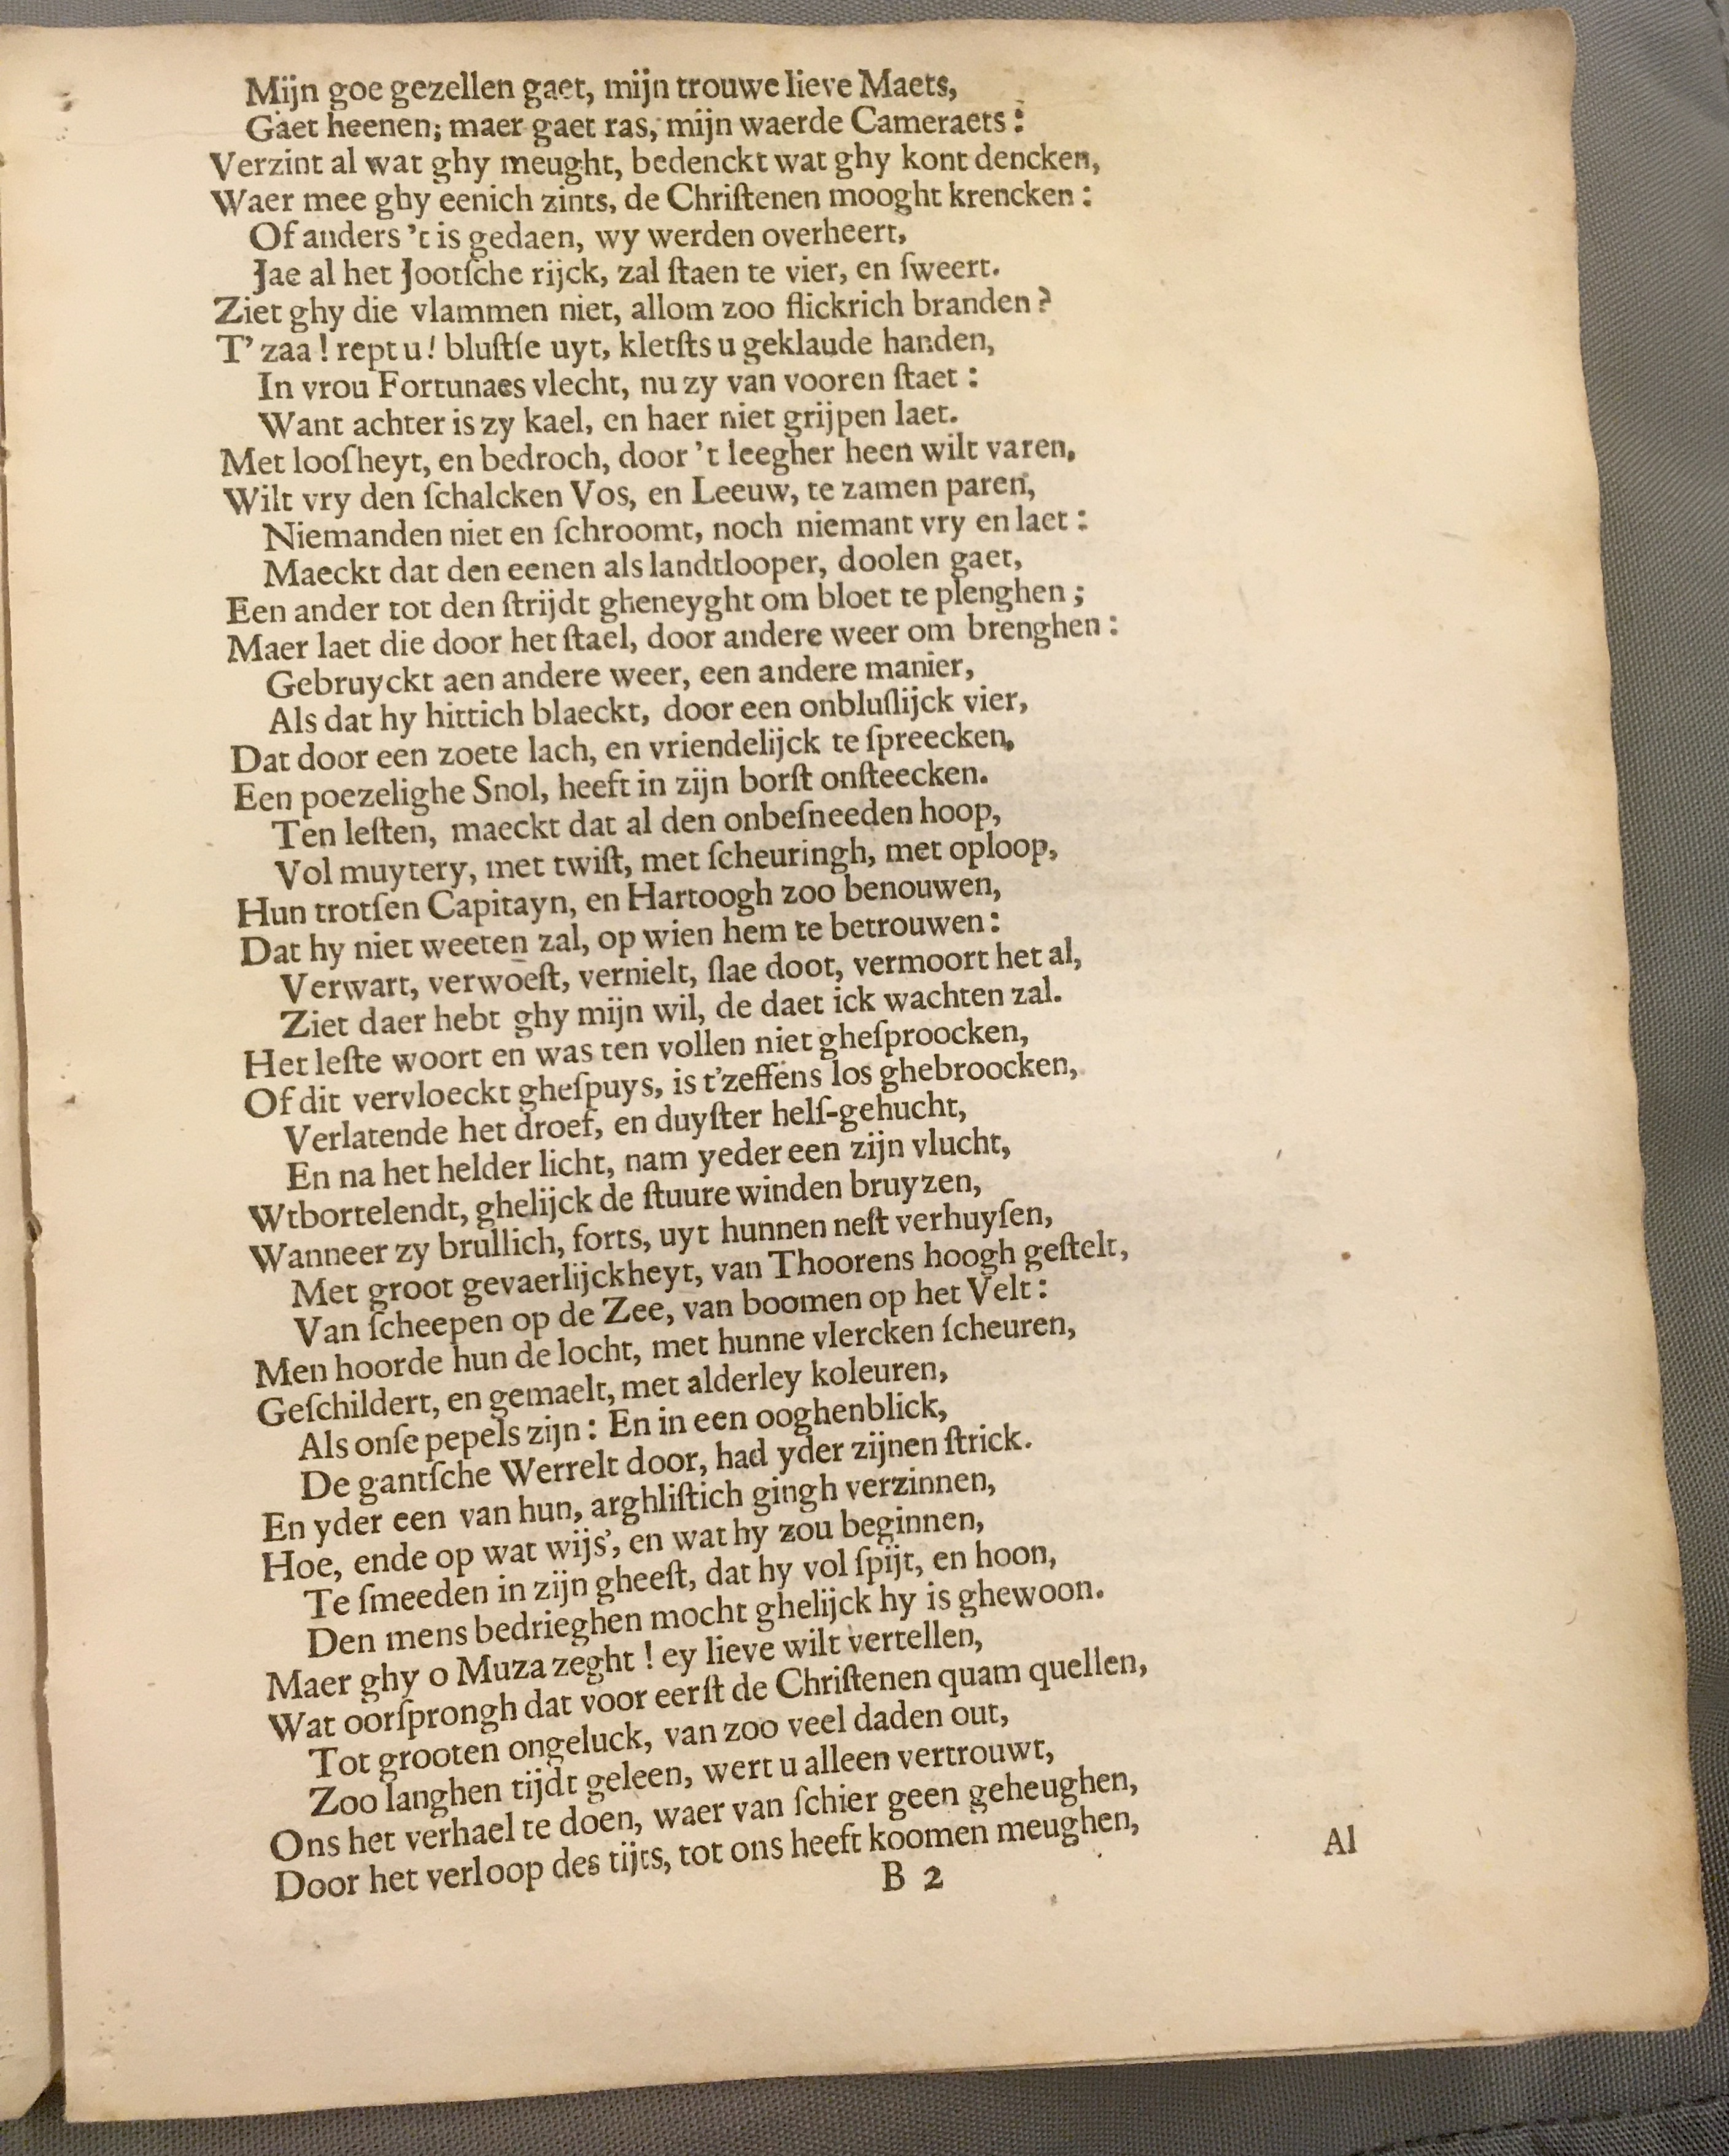 Mijn goe gezellen gaet, mijn trouwe lieve Maets,
Gaet heenen; maer gaet ras, mijn waerde Cameraets:
Verzint al wat ghy meught, bedenckt wat ghy kont dencken,
Waer mee ghy eenich zints, de Chriſtenen mooght krencken:
Of anders 't is gedaen, wy werden overheert,
Jae al het Jootſche rijck, zal ſtaen te vier, en ſweert.
Ziet ghy die vlammen niet, allom zoo flickrich branden?
T' zaa! rept u! bluſtſe uyt, kletſts u geklaude handen,
In vrou Fortunaes vlecht, nu zy van vooren ſtaet:
Want achter is zy kael, en haer niet grijpen laet.
Met looſheyt, en bedroch, door 't leegher heen wilt varen,
Wilt vry den ſchalcken Vos, en Leeuw, te zamen paren,
Niemanden niet en ſchroomt, noch niemant vry en laet:
Maeckt dat den eenen als landtlooper, doolen gaet,
Een ander tot den ſtrijdt gheneyght om bloet te plenghen;
Maer laet die door het ſtael, door andere weer om brenghen:
Gebruyckt aen andere weer, een andere manier,
Als dat hy hittich blaeckt, door een onbluſlijck vier,
Dat door een zoete lach, en vriendelijck te ſpreecken,
Een poezelighe Snol, heeft in zijn borſt onſteecken.
Ten leſten, maeckt dat al den onbeſneeden hoop,
Vol muytery, met twiſt, met ſcheuringh, met oploop,
Hun trotſen Capitayn, en Hartoogh zoo benouwen,
Dat hy niet weeten zal, op wien hem te betrouwen:
Verwart, verwoeſt, vernielt, ſlae doot, vermoort het al,
Ziet daer hebt ghy mijn wil, de daet ick wachten zal.
Het leſte woort en was ten vollen niet gheſproocken,
Of dit vervloeckt gheſpuys, is t'zeffens los ghebroocken,
Verlatende het droef, en duyſter helſ-gehucht,
En na het helder licht, nam yeder een zijn vlucht,
Wtbortelendt, ghelijck de ſtuure winden bruyzen,
Wanneer zy brullich, forts, uyt hunnen neſt verhuyſen,
Met groot gevaerlijckheyt, van Thoorens hoogh geſtelt,
Van ſcheepen op de Zee, van boomen op het Velt:
Men hoorde hun de locht, met hunne vlercken ſcheuren,
Geſchildert, en gemaelt, met alderley koleuren,
Als onſe pepels zijn: En in een ooghenblick,
De gantſche Werrelt door, had yder zijnen ſtrick.
En yder een van hun, arghliſtich gingh verzinnen,
Hoe, ende op wat wijs', en wat hy zou beginnen,
Te ſmeeden in zijn gheeſt, dat hy vol ſpijt, en hoon,
Den mens bedrieghen mocht ghelijck hy is ghewoon.
Maer ghy o Muza zeght! ey lieve wilt vertellen,
Wat oorſprongh dat voor eerſt de Chriſtenen quam quellen,
Tot grooten ongeluck, van zoo veel daden out,
Zoo langhen tijdt geleen, wert u alleen vertrouwt,
Ons het verhael te doen, waer van ſchier geen geheughen,
Door het verloop des tijts, tot ons heeft koomen meughen,
B 2
Al